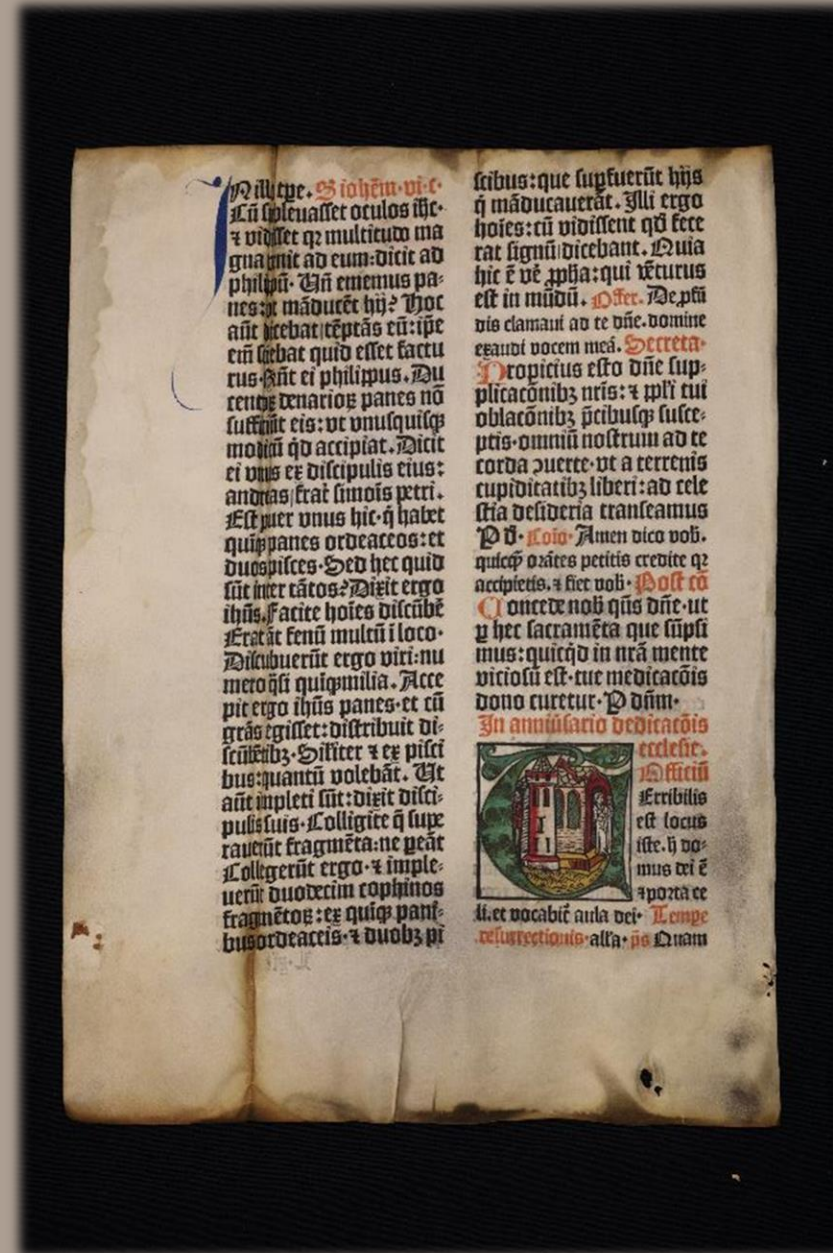 IN illo tꝑe. S iohēm·vi·c·
Cū subleuasset oculos ihc·
⁊ vidisset qꝛ multitudo ma
gna venit ad eum:dicit ad
philippū. Un̄ ememus pa⸗
nes:vt māducēt hij? Hoc
aūt dicebat tēptās eū:ip̄e
em̄ sciebat quid esset factu
rus. Rn̄t ei philippus. Du
centoꝝ denarioꝝ panes nō
sufficiūt eis:vt vnusquisqꝫ
modicū qd̄ accipiat. Dicit
ei vnus ex discipulis eius:
andreas frat̄ simois petri.
Est puer vnus hic·q̄ habet
quīqꝫ panes ordeaceos:et
duos pisces·Sed hec quid
sūt inter tātos? Dixit ergo
ihūs. Facite hoīes discūbē
Erat āt fenū multū i loco·
Discubuerūt ergo viri:nu
mero q̄si quīqꝫ milia. Acce
pit ergo ihūs panes·et cū
grās egisset:distribuit di⸗
scūbētibꝫ·Silīter ⁊ ex pisci
bus:quantū volebāt. Ut
aūt impleti sūt:dixit disci⸗
pulis suis·Colligite q̄ supe
rauerūt fragmēta:ne peāt
Collegerūt ergo·⁊ imple⸗
uerūt duodecim cophinos
fragmētoꝝ:ex quīqꝫ pani⸗
bus ordeaceis·⁊ duobꝫ pi
scibus:que suꝑfuerūt hijs
q̄ māducauerāt. Illi ergo
hoīes:cū vidissent qd̄ fece
rat signū dicebant. Quia
hic ē vē ꝓpha:qui vēturus
est in mūdū. Offer. De ꝓfū
dis clamaui ad te dn̄e.domine
exaudi vocem meā. Secreta·
Propicius esto dn̄e sup⸗
plicacōnibꝫ nr̄is:⁊ ppl̄i tui
oblacōnibꝫ p̄cibusqꝫ susce⸗
ptis·omniū nostrum ad te
corda ꝯuerte·vt a terrenis
cupiditatibꝫ liberi:ad cele
stia desideria transeamus
P d̄. Coīo·Amen dico vob̄.
quicqꝫ orātes petitis credite qꝛ
accipietis.⁊ fiet vob̄·Post cō
Concede nob̄ q̄s dn̄e·ut
ꝑ hec sacramēta que sūpsi
mus:quicq̄d in nr̄ā mente
viciosū est·tue medicacōis
dono curetur·P dn̄m·
In anniūsario dedicacōis
ecclesie.
Officiū
Erribilis
est locus
iste.h̄ do⸗
mus dei ē
⁊ porta ce
li.et vocabit̄ aula dei· Tempe
resurrectionis·all'a·p̄s Quam